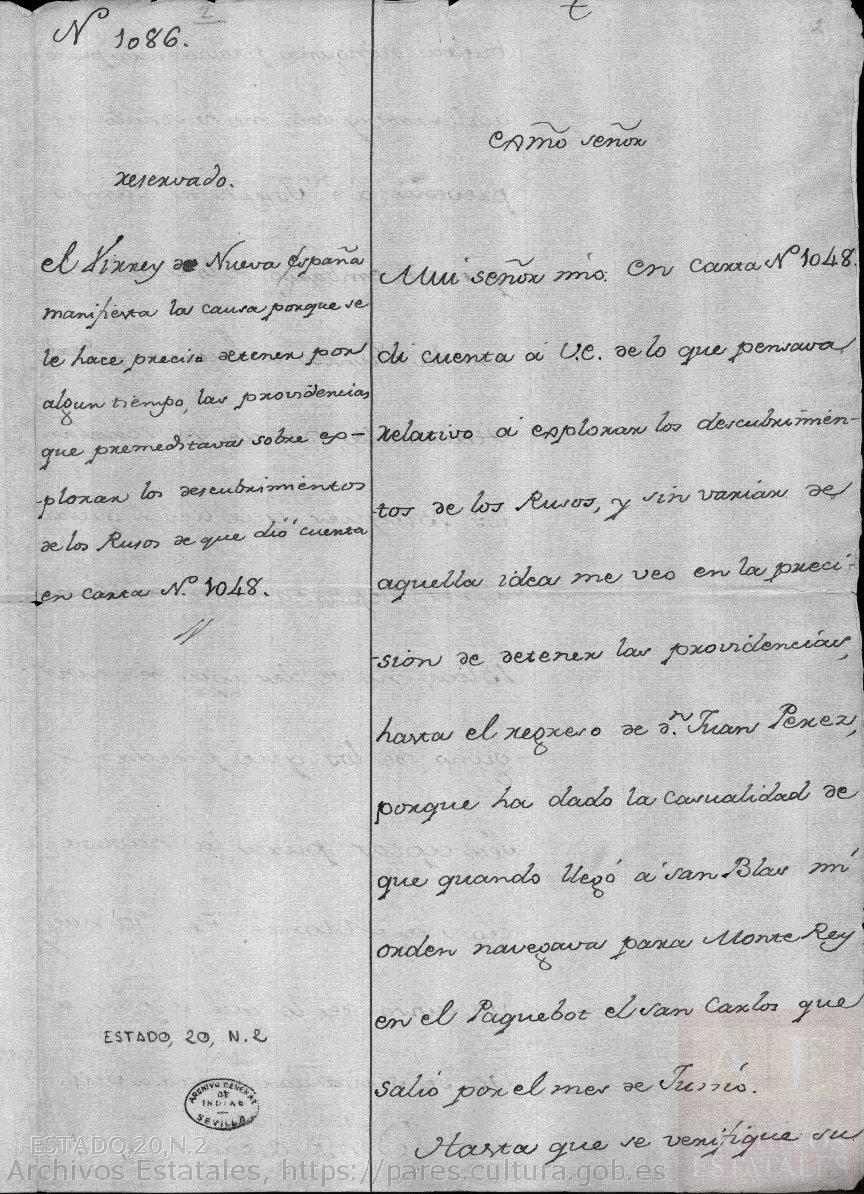 2
Nº 1086.
reservado.
el Virrey de Nueva España
manifiesta la causa porque se
le hace preciso detener por
algun tiempo, las providencias
que premeditava sobre ex-
-plorar los descubrimientos
de los Rusos de que dió cuenta
en carta Nº. 1048.
ESTADO, 20, N.2
ARCHIVO GENERAL
DE
INDIAS
SEVILLA
Exmõ señor
Mui señor mio. En carta Nº 1048.
di cuenta á V.E. de lo que pensava
relativo á explorar los descubrimien-
-tos de los Rusos, y sin variar de
aquella idea me veo en la preci-
-sion de detener las providencias,
hasta el regreso de dn. Juan Perez,
porque ha dado la casualidad de
que quando llegó á san Blas mi
orden navegava para Monte Rey
en el Paquebot el san Carlos que
salió por el mes de Junio.
Hasta que se verifique su
ESTADO,20,N.2
Archivos Estatales, https://pares.cultura.gob.es